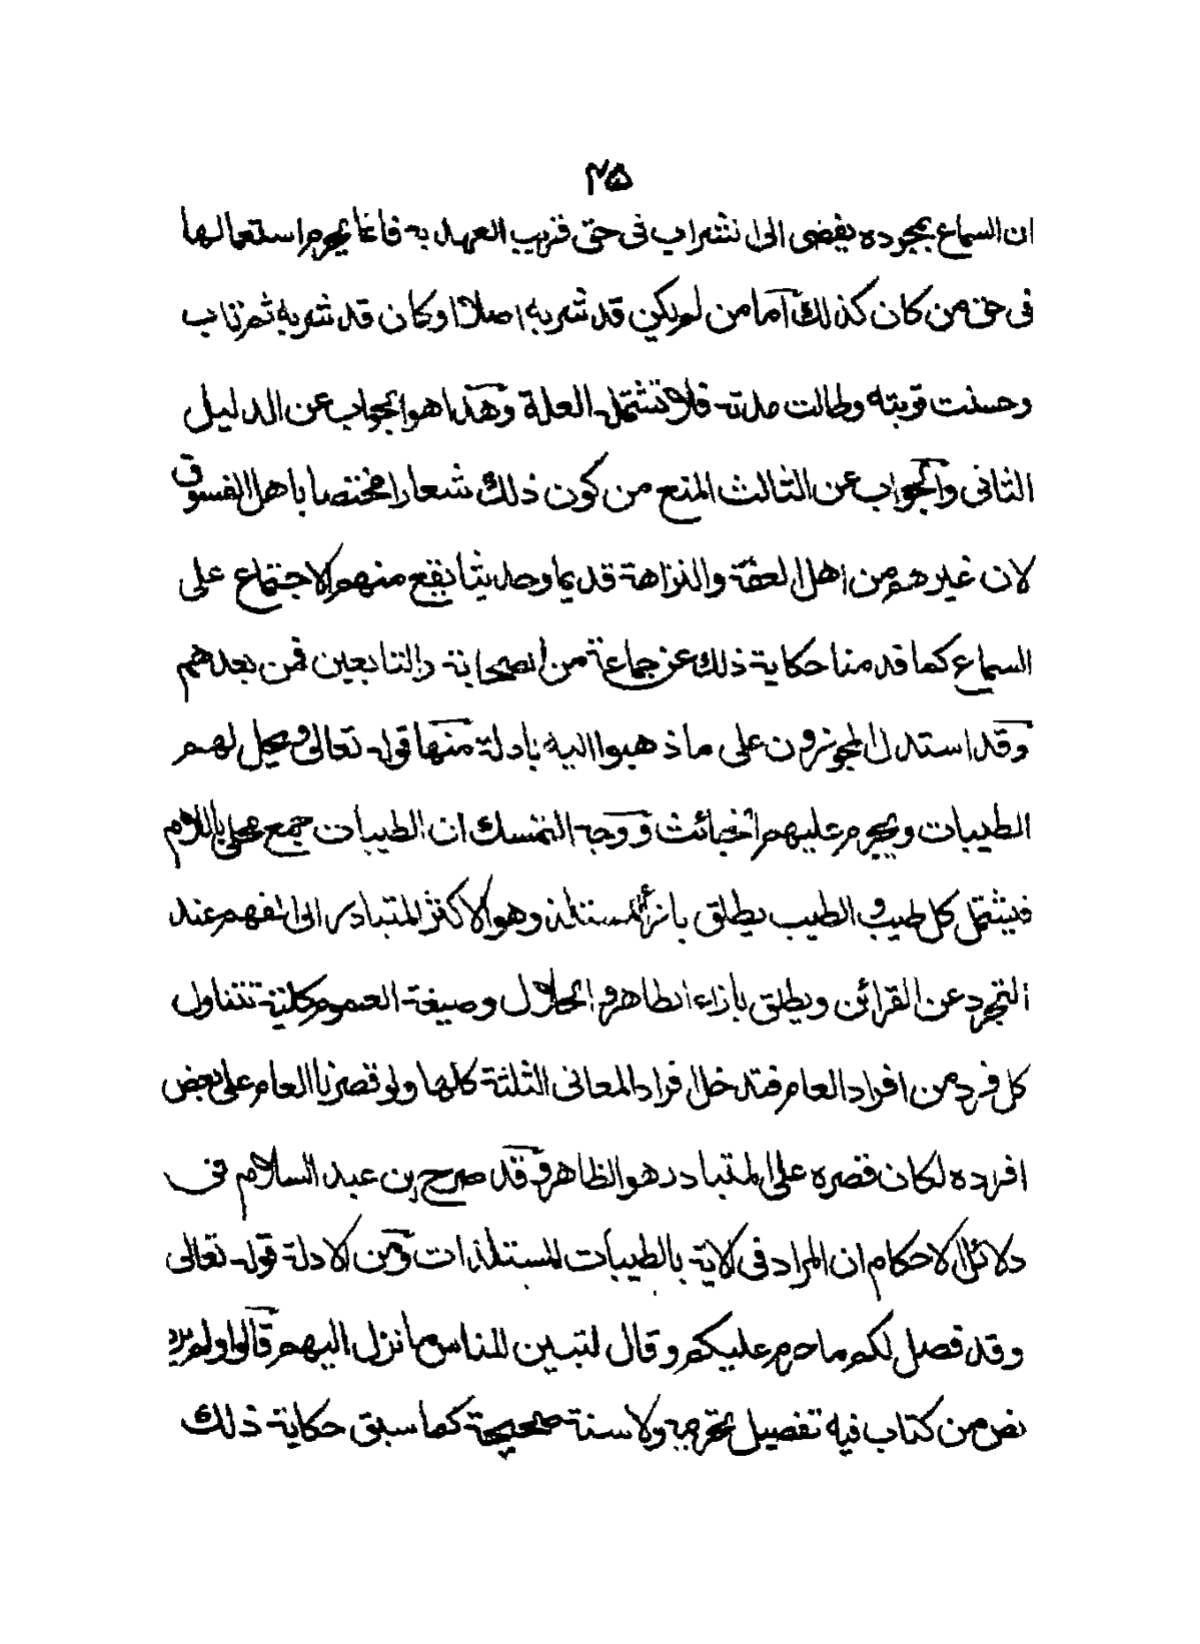 ۲۵
ان السماع بمجرده يفضى الى الشراب فى حق قريب العهد به فانما يحرم استعمالها
فى حق من كان كذلك آما من لم يكن قد شربه اصلا او كان قد شربه ثم تاب
وحسنت توبته وطالت مدته فلا تشتمل العلة وهذا هو الجواب عن الدليل
الثانى والجواب عن الثالث المنع من كون ذلك شعارا مختصا باهل الفسوق
لان غيرهم من اهل العفة والنزاهة قديما وحديثا يقع منهم الاجتماع على
السماع كما قدمنا حكاية ذلك عن جماعة من الصحابة والتابعين فمن بعدهم
وقد استدل المجوزون على ما ذهبوا اليه بادلة منها قوله تعالى ويحل لهم
الطيبات ويحرم عليهم الخبائث ووجه التمسك ان الطيبات جمع محلى باللام
فيشتمل كل طيب والطيب يطلق بازاء المستلذ وهو الاكثر المتبادر الى الفهم عند
التجرد عن القرائن ويطلق بازاء الطاهر والحلال وصيغة العموم كلية تتناول
كل فرد من افراد العام فتدخل افراد المعانى الثلثة كلها ولو قصرنا العام على بعض
افرده لكان قصره على المتبادر هو الظاهر وقد صرح بن عبد السلام فى
دلائل الاحكام ان المراد فى الاية بالطيبات المستلذات ومن الادلة قوله تعالى
وقد فصل لكم ما حرم عليكم وقال لتبين للناس ما نزل اليهم قالوا ولم يرد
نص من كتاب فيه تفصيل تحريمه ولا سنة صحيحة كما سبق حكاية ذلك